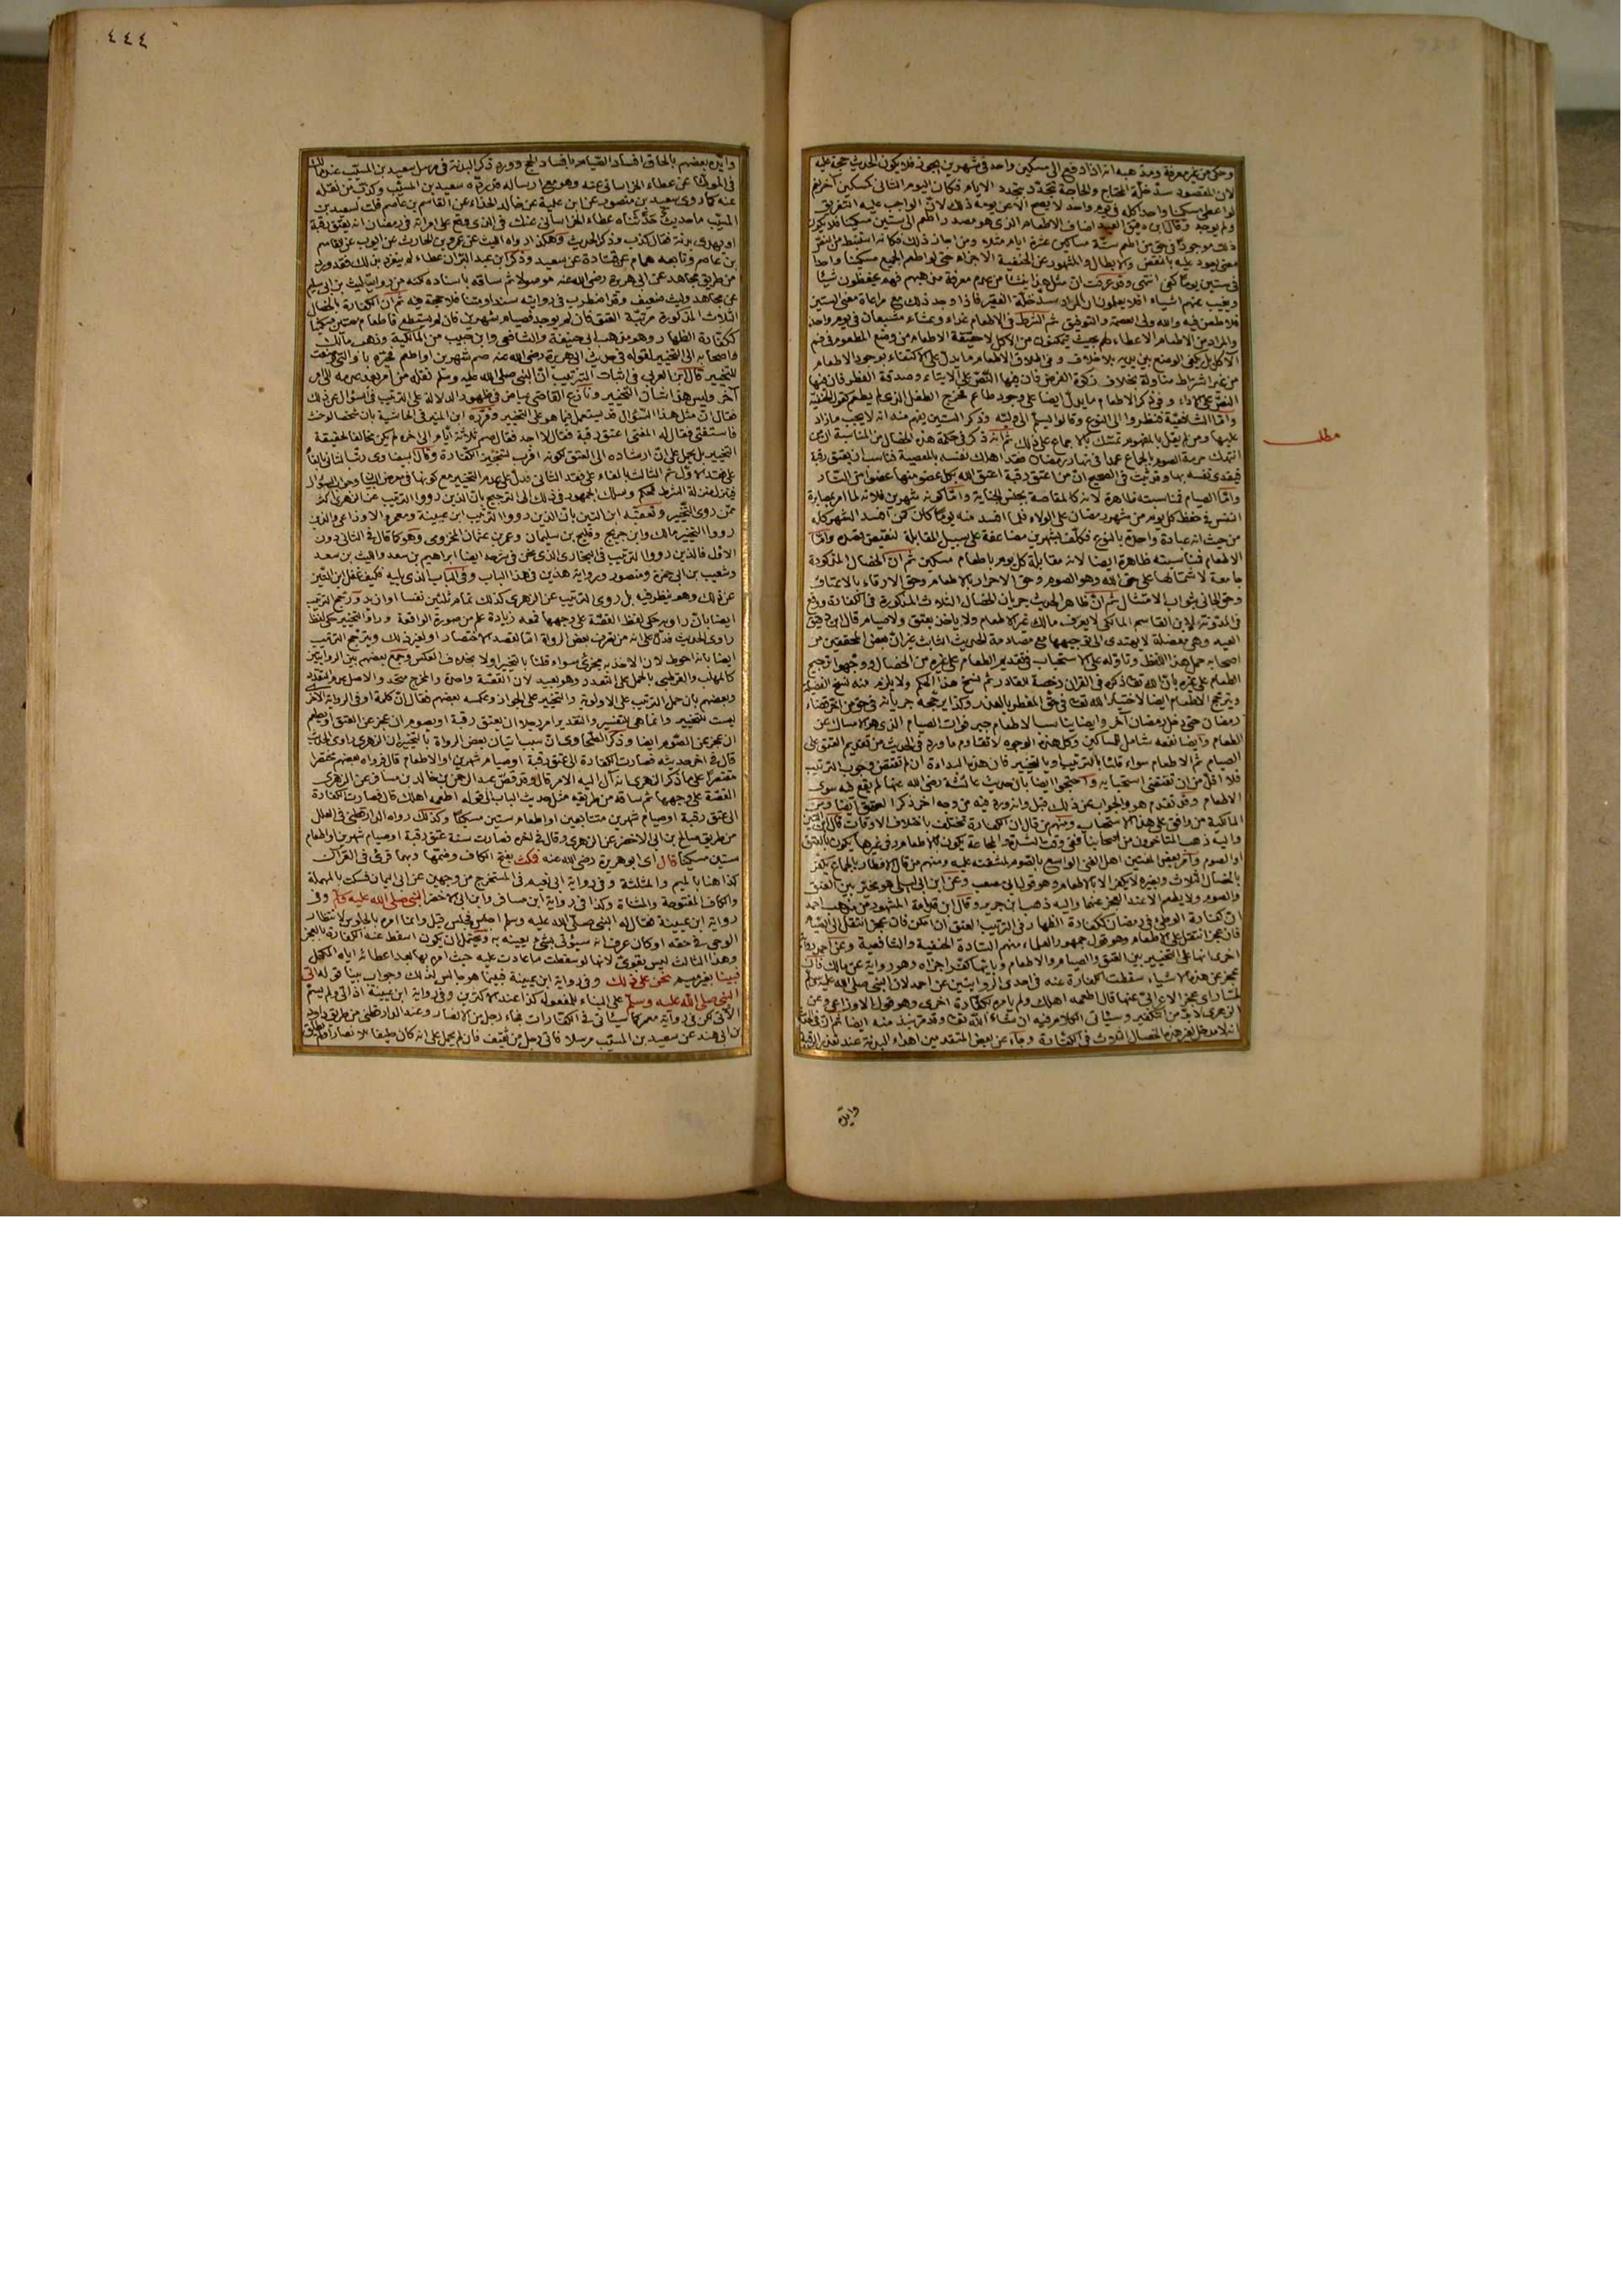 وحكى من عدم معرفة ومذهبه انه اذا دفع الى مسكين واحد في شهرين يجوز فلا يكون الحديث حجة عليه
لان المقصود سد خلة المحتاج والحاجة تتجدد بتجدد الايام فكان اليوم الثاني كمسكين آخر
لو اعطى مسكينا واحدا كله في يوم واحد لا يصح الا عن يومه ذلك لان الواجب عليه التفريق
ولم يوجد وقال ابن دقيق العيد اضاف الاطعام الذي هو مصدر اطعم الى ستين مسكينا فلا يكون
ذلك موجودا في حق من اطعم ستة مساكين عشرة ايام مثلا ومن اجاز ذلك فكانه استنبط من النص
معنى يعود عليه بالنقض والابطال والمشهور عن الحنفية الاجزاء حتى لو اطعم الجميع مسكينا واحدا
في ستين يوما كفى انتهى وقد عرفت ان مثل هذا نشأ من عدم معرفة مذهبهم فهم يحفظون شيئا
ويغيب عنهم اشياء افلا يعلمون ان المراد سد خلة الفقير فاذا وجد ذلك مع مراعاة معنى الستين
فلا طعن فيه والله ولي العصمة والتوفيق ثم الشرط في الاطعام غداء وعشاء مشبعان في يوم واحد
والمراد من الاطعام الاعطاء لهم بحيث يتمكنون من الاكل لا حقيقة الاطعام من وضع المطعوم في فم
الآكل بل يكفي الوضع بين يديه بلا خلاف وفي اطلاق الاطعام ما يدل على الاكتفاء بوجود الاطعام
من غير اشتراط مناولة بخلاف زكوة الفرض فان فيها النص على الايتاء وصدقة الفطر فان فيها
النص على الاداء وفي ذكر الاطعام ما يدل ايضا على وجود طاعم فخرج الطفل الذي لم يطعم كقول الحنفية
واما الشافعية فنظروا الى النوع وقالوا يسلم الى وليه وذكر الستين يفهم منه انه لا يجب ما زاد
عليها ومن لم يقل بالمفهوم تمسك بالاجماع على ذلك ثم انه ذكر في حكمة هذه الخصال من المناسبة ان من
مطلب
انتهك حرمة الصوم بالجماع عمدا في نهار رمضان فقد اهلك نفسه بالمعصية فناسب ان يعتق رقبة
فيفدي نفسه بها وقد ثبت في الصحيح ان من اعتق رقبة اعتق الله بكل عضو منها عضوا من النار
واما الصيام فمناسبته ظاهرة لانه كالمقاصة بجنس الجناية واما كونه شهرين فلانه لما امر بمصابرة
النفس في حفظ كل يوم من شهر رمضان على الولاء فلما افسد منه يوما كان كمن افسد الشهر كله
من حيث انه عبادة واحدة بالنوع فكلف بشهرين مضاعفة على سبيل المقابلة لنقيض قصده واما
الاطعام فمناسبته ظاهرة ايضا لانه مقابلة كل يوم باطعام مسكين ثم ان الخصال المذكورة
جامعة لاشتمالها على حق الله وهو الصوم وحق الاحرار بالاطعام وحق الارقاء بالاعتاق
وحق الجاني بثواب الامتثال ثم ان ظاهر الحديث جريان الخصال الثلاث المذكورة في الكفارة ووقع
في المدونة لابن القاسم المالكي لا يعرف مالك غير الاطعام ولا ياخذ بعتق ولا صيام قال ابن دقيق
العيد وهي معضلة لا يهتدى الى توجيهها مع مصادمة الحديث الثابت غير ان بعض المحققين من
اصحابه حمل هذا اللفظ وتاوله على الاستحباب في تقديم الطعام على غيره من الخصال ووجهوا ترجيح
الطعام على غيره بان الله تعالى ذكره في القران رخصة للقادر ثم نسخ هذا الحكم ولا يلزم منه نسخ الفضيلة
ويترجح الاطعام ايضا لاختيار الله تعالى في حق المفطر بالعذر وكذا يرجحه جريانه في حق من اخر قضاء
رمضان حتى دخل رمضان آخر وايضا يناسب الاطعام جبر فوات الصيام الذي هو الامساك عن
الطعام وايضا نفعه شامل للمساكين وكل هذه الوجوه لا تقاوم ما ورد في الحديث من تقديم العتق على
الصيام ثم الاطعام سواء قلنا بالترتيب او بالتخيير فان هذه البداءة ان لم تقتض وجوب الترتيب
فلا اقل من ان تقتضي استحبابه واحتجوا ايضا بان حديث عائشة رضي الله عنها لم يقع فيه سوى
الاطعام وقد تقدم هو والجواب عن ذلك قبل وانه ورد فيه من وجه اخر ذكر العتق ايضا ومن
المالكية من وافق على هذا الاستحباب ومنهم من قال ان الكفارة تختلف باختلاف الاوقات قال ابن التين
واليه ذهب المتاخرون من اصحابنا ففي وقت الشدة والمجاعة يكون بالاطعام وفي غيرها يكون بالعتق
او الصوم وامر بعض المفتين اهل الغنى الواسع بالصوم لمشقته عليه ومنهم من قال الافطار بالجماع يكفر
بالخصال الثلاث وبغيره لا يكفر الا بالاطعام وهو قول ابي مصعب وعن ابن ابي ليلى هو مخير بين العتق
والصوم ولا يطعم الا عند العجز عنهما واليه ذهب ابن جرير وقال ابن قدامة المشهور من مذهب احمد
ان كفارة الوطئ في رمضان ككفارة الظهار في الترتيب العتق ان امكن فان عجز انتقل الى الصيام
فان عجز انتقل الى الاطعام وهو قول جمهور العلماء منهم السادة الحنفية والشافعية وعن احمد رواية
اخرى انها على التخيير بين العتق والصيام والاطعام وبايها كفر اجزاه وهو رواية عن مالك فان
عجز عن هذه الاشياء سقطت الكفارة عنه في احدى الروايتين عن احمد لان النبي صلى الله عليه وسلم
لما راى عجز الاعرابي عنها قال اطعمه اهلك ولم يامره بكفارة اخرى وهو قول الاوزاعي وعن
الزهري لا بد من التكفير وسيأتي الكلام فيه ان شاء الله تعالى وقد مر نبذ منه ايضا ثم ان
انه لا مدخل لغير هذه الخصال الثلاث في الكفارة وجاء عن بعض المتقدمين اهداء البدنة عند تعذر الرقبة
وايده
٤٤٤
وايده بعضهم بالحاق افساد الصيام بافساد الحج وورد ذكر البدنة في مرسل سعيد بن المسيب عند مالك
في الموطأ عن عطاء الخراساني عنه وهو مع ارساله قد رده سعيد بن المسيب وكذب من نقله
عنه كما روى سعيد بن منصور عن ابن علية عن خالد الحذاء عن القاسم بن عاصم قلت لسعيد بن
المسيب ما حديث حدثناه عطاء الخراساني عنك في الذي وقع على امراته في رمضان انه يعتق رقبة
او يهدي بدنة فقال كذب وذكر الحديث وهكذا رواه الليث عن عمرو بن الحارث عن ايوب عن القاسم
بن عاصم وتابعه همام عن قتادة عن سعيد وذكر ابن عبد البر ان عطاء لم ينفرد بذلك فقد ورد
من طريق مجاهد عن ابي هريرة رضي الله عنه موصولا ثم ساقه باسناده لكنه من رواية ليث بن ابي سليم
عن مجاهد وليث ضعيف وقد اضطرب في روايته سندا ومتنا فلا حجة فيه ثم ان الكفارة بالخصال
الثلاث المذكورة مرتبة العتق فان لم يوجد فصيام شهرين فان لم يستطع فاطعام ستين مسكينا
ككفارة الظهار وهو مذهب ابي حنيفة والشافعي وابن حبيب من المالكية وذهب مالك
واصحابه الى التخيير لقوله في حديث ابي هريرة رضي الله عنه صم شهرين او اطعم فخيره باو التي وضعت
للتخيير قال ابن العربي في اثبات الترتيب ان النبي صلى الله عليه وسلم نقله من امر بعد عدمه الى امر
آخر وليس هذا شان التخيير ونازع القاضي عياض في ظهور الدلالة على الترتيب في السؤال عن ذلك
فقال ان مثل هذا السؤال قد يستعمل فيما هو على التخيير وقرره ابن المنير في الحاشية بان شخصا لو حنث
فاستفتى فقال له المفتي اعتق رقبة فقال لا اجد فقال صم ثلاثة ايام الى آخره لم يكن مخالفا لحقيقة
التخيير بل يحمل على ان ارشاده الى العتق لكونه اقرب لتنجيز الكفارة وقال البيضاوي رتب الثاني بالفاء
على فقد الاول ثم الثالث بالفاء على فقد الثاني فدل على عدم التخيير مع كونها في معرض البيان وجواب السؤال
فينزل منزلة الشرط للحكم وسلك الجمهور في ذلك الى الترجيح بان الذين رووا الترتيب عن الزهري اكثر
ممن روى التخيير وتعقبه ابن التين بان الذين رووا الترتيب ابن عيينة ومعمر والاوزاعي والذين
رووا التخيير مالك وابن جريج وفليح بن سليمان وعمر بن عثمان المخزومي وهو كما قال في الثاني دون
الاول فالذين رووا الترتيب في البخاري الذي نحن في شرحه ايضا ابراهيم بن سعد والليث بن سعد
وشعيب بن ابي حمزة ومنصور ورواية هذين في هذا الباب وفي الباب الذي يليه فكيف غفل ابن التين
عن ذلك وهو ينظر فيه بل روى الترتيب عن الزهري كذلك تمام ثلثين نفسا او ازيد ورجح الترتيب
ايضا بان راويه حكى لفظ القصة على وجهها فمعه زيادة علم من صورة الواقعة وراوي التخيير حكى لفظ
راوي الحديث فدل على انه من تصرف بعض الرواة اما لقصد الاختصار او لغير ذلك ويترجح الترتيب
ايضا بانه احوط لان الاخذ به مجزئ سواء قلنا بالتخيير او لا بخلاف العكس وجمع بعضهم بين الروايتين
كالمهلب والقرطبي بالحمل على التعدد وهو بعيد لان القصة واحدة والمخرج متحد والاصل عدم التعدد
وبعضهم بان حمل الترتيب على الاولوية والتخيير على الجواز وعكسه بعضهم فقال ان كلمة او في الرواية الاخرى
ليست للتخيير وانما هي للتفسير والتقدير امر رجلا ان يعتق رقبة او يصوم ان عجز عن العتق او يطعم
ان عجز عن الصوم ايضا وذكر الطحاوي ان سبب اتيان بعض الرواة بالتخيير ان الزهري راوي الحديث
قال في آخر حديثه فصارت الكفارة الى عتق رقبة او صيام شهرين او الاطعام قال فرواه بعضهم مختصرا
مقتصرا على ما ذكر الزهري انه آل اليه الامر قال وقد قص عبد الرحمن بن خالد بن مسافر عن الزهري
القصة على وجهها ثم ساقه من طريقه مثل حديث الباب الى قوله اطعمه اهلك قال فصارت الكفارة
الى عتق رقبة او صيام شهرين متتابعين او اطعام ستين مسكينا وكذلك رواه الدارقطني في العلل
من طريق صالح بن ابي الاخضر عن الزهري وقال في آخره فصارت سنة عتق رقبة او صيام شهرين او اطعام
ستين مسكينا قال اى ابو هريرة رضي الله عنه فمكث بفتح الكاف وضمها وبهما قرئ في القرآن
كذا هنا بالميم والمثلثة وفي رواية ابي نعيم في المستخرج من وجهين عن ابي اليمان فسكت بالمهملة
والكاف المفتوحة والمثناة وكذا في رواية ابن مسافر وابن ابي الاخضر النبي صلى الله عليه وسلم وفي
رواية ابن عيينة فقال له النبي صلى الله عليه وسلم اجلس فجلس قيل وانما امره بالجلوس لانتظار
الوحي في حقه او كان عرف انه سيؤتى بشيء يعينه به ويحتمل ان يكون اسقط عنه الكفارة بالعجز
وهذا الثالث ليس بقوي لانها لو سقطت ما عادت عليه حيث امره بها بعد اعطائه اياه المكتل
فبينا بغير ميم نحن على ذلك وفي رواية ابن عيينة فبينما هو جالس كذلك وجواب بينا قوله اتي
النبي صلى الله عليه وسلم على البناء للمفعول كذا عند الاكثرين وفي رواية ابن عيينة اذ اتي ولم يسم
الآتي لكن في رواية معمر كما سيأتي في الكفارات فجاء رجل من الانصار وعند الدارقطني من طريق داود
بن ابي هند عن سعيد بن المسيب مرسلا فاتى رجل من ثقيف فان لم يحمل على انه كان حليفا للانصار او اطلق